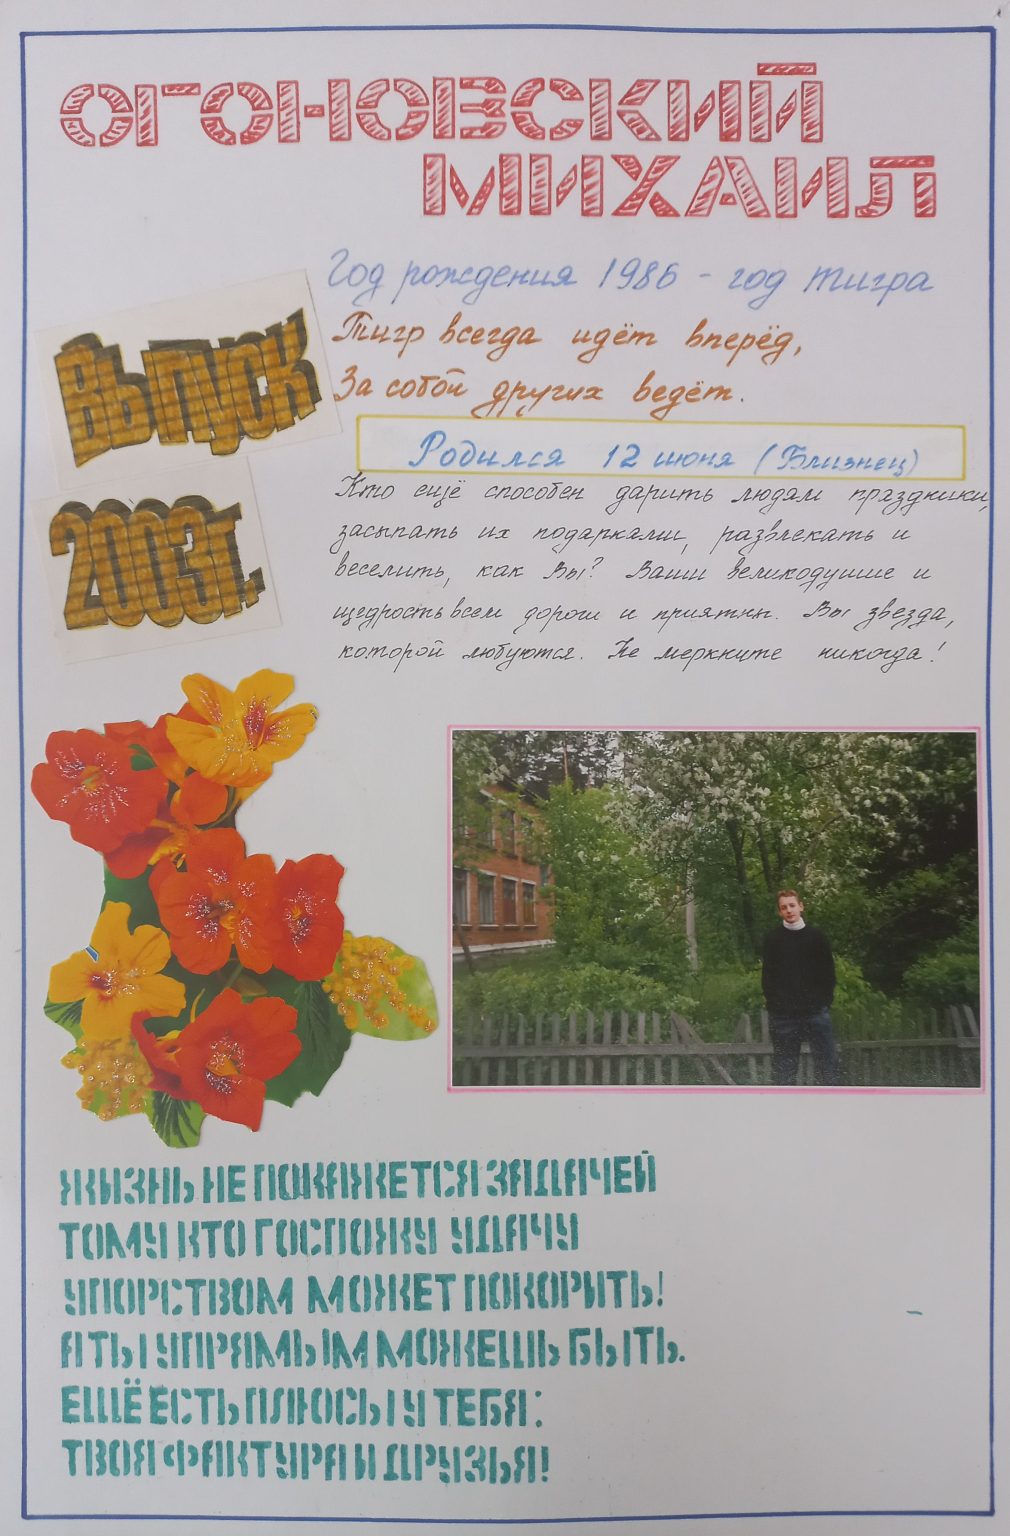 ОГОНОВСКИЙ
МИХАИЛ
Год рождения 1986 - год тигра
Тигр всегда идёт вперёд,
За собой других ведёт.
Выпуск
2003г.
Родился 12 июня (Близнец)
Кто ещё способен дарить людям праздники,
засыпать их подарками, развлекать и
веселить, как Вы? Ваши великодушие и
щедрость всем дороги и приятны. Вы звезда,
которой любуются. Не меркните никогда!
ЖИЗНЬ НЕ ПОКАЖЕТСЯ ЗАДАЧЕЙ
ТОМУ КТО ГОСПОЖУ УДАЧУ
УПОРСТВОМ МОЖЕТ ПОКОРИТЬ!
А ТЫ УПРЯМЫМ МОЖЕШЬ БЫТЬ.
ЕЩЁ ЕСТЬ ПЛЮСЫ У ТЕБЯ:
ТВОЯ ФАКТУРА И ДРУЗЬЯ!